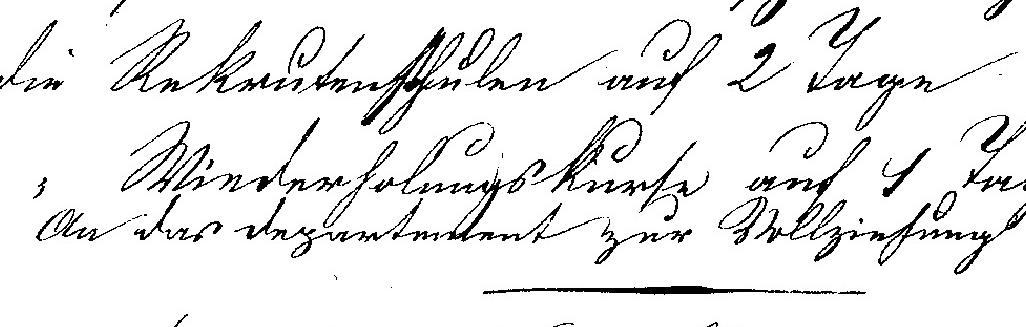 die Rekrutenschulen auf 2 Tage
„ Wiederholungskurse auf 1 Tag
An das Departement zur Vollziehung